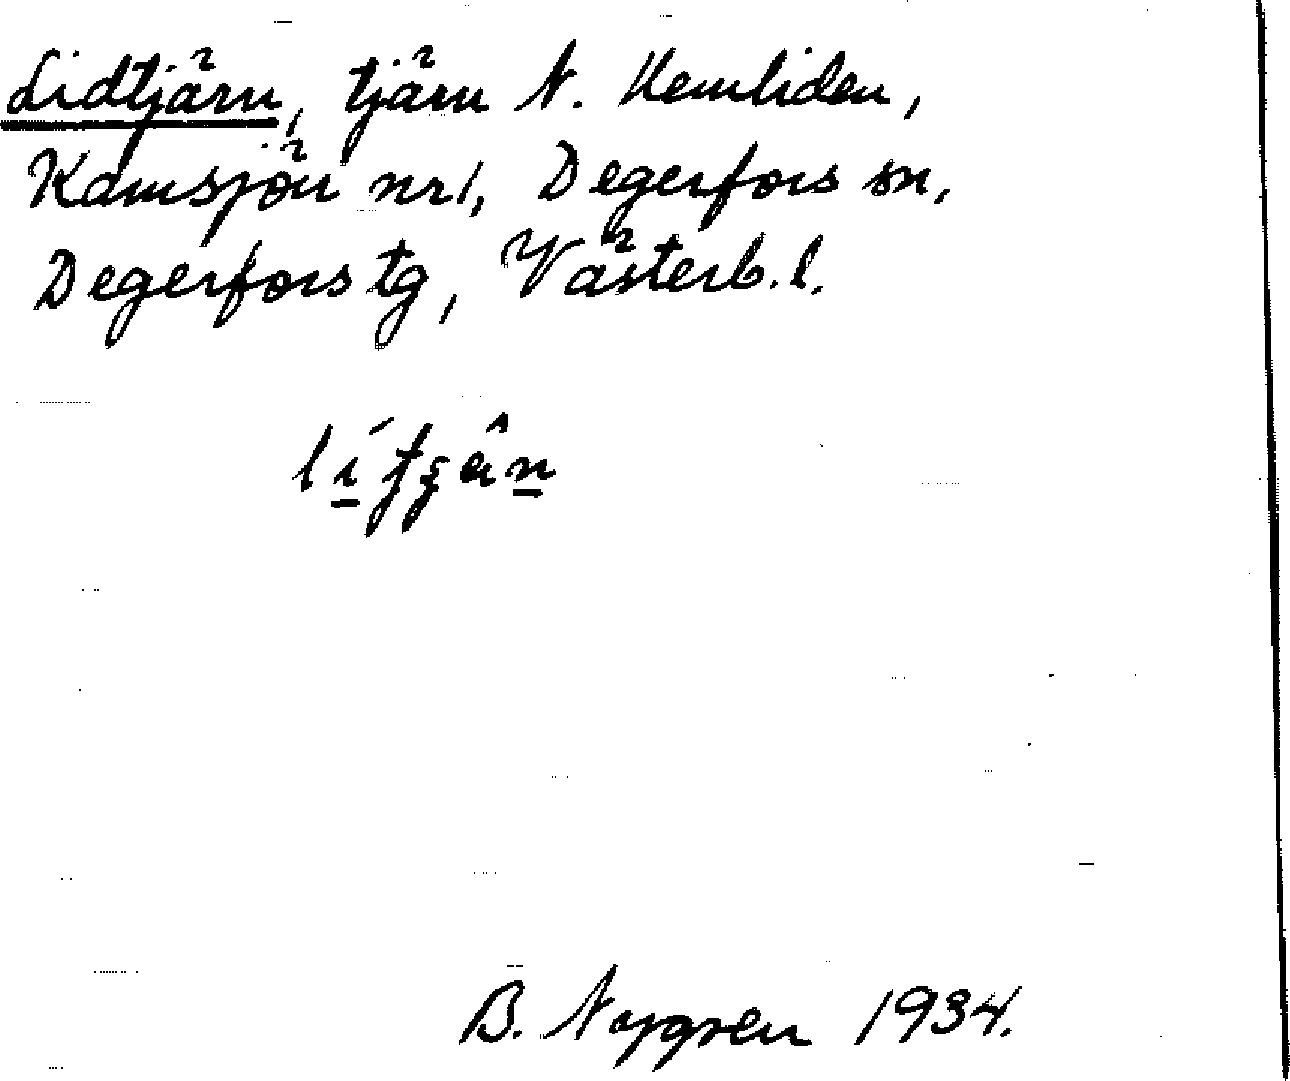 Lidtjärn, tjärn N. Hemliden,
Kamsjön nr 1, Degerfors sn,
Degerfors tg, Västerb. l.
B. Nygren 1934.